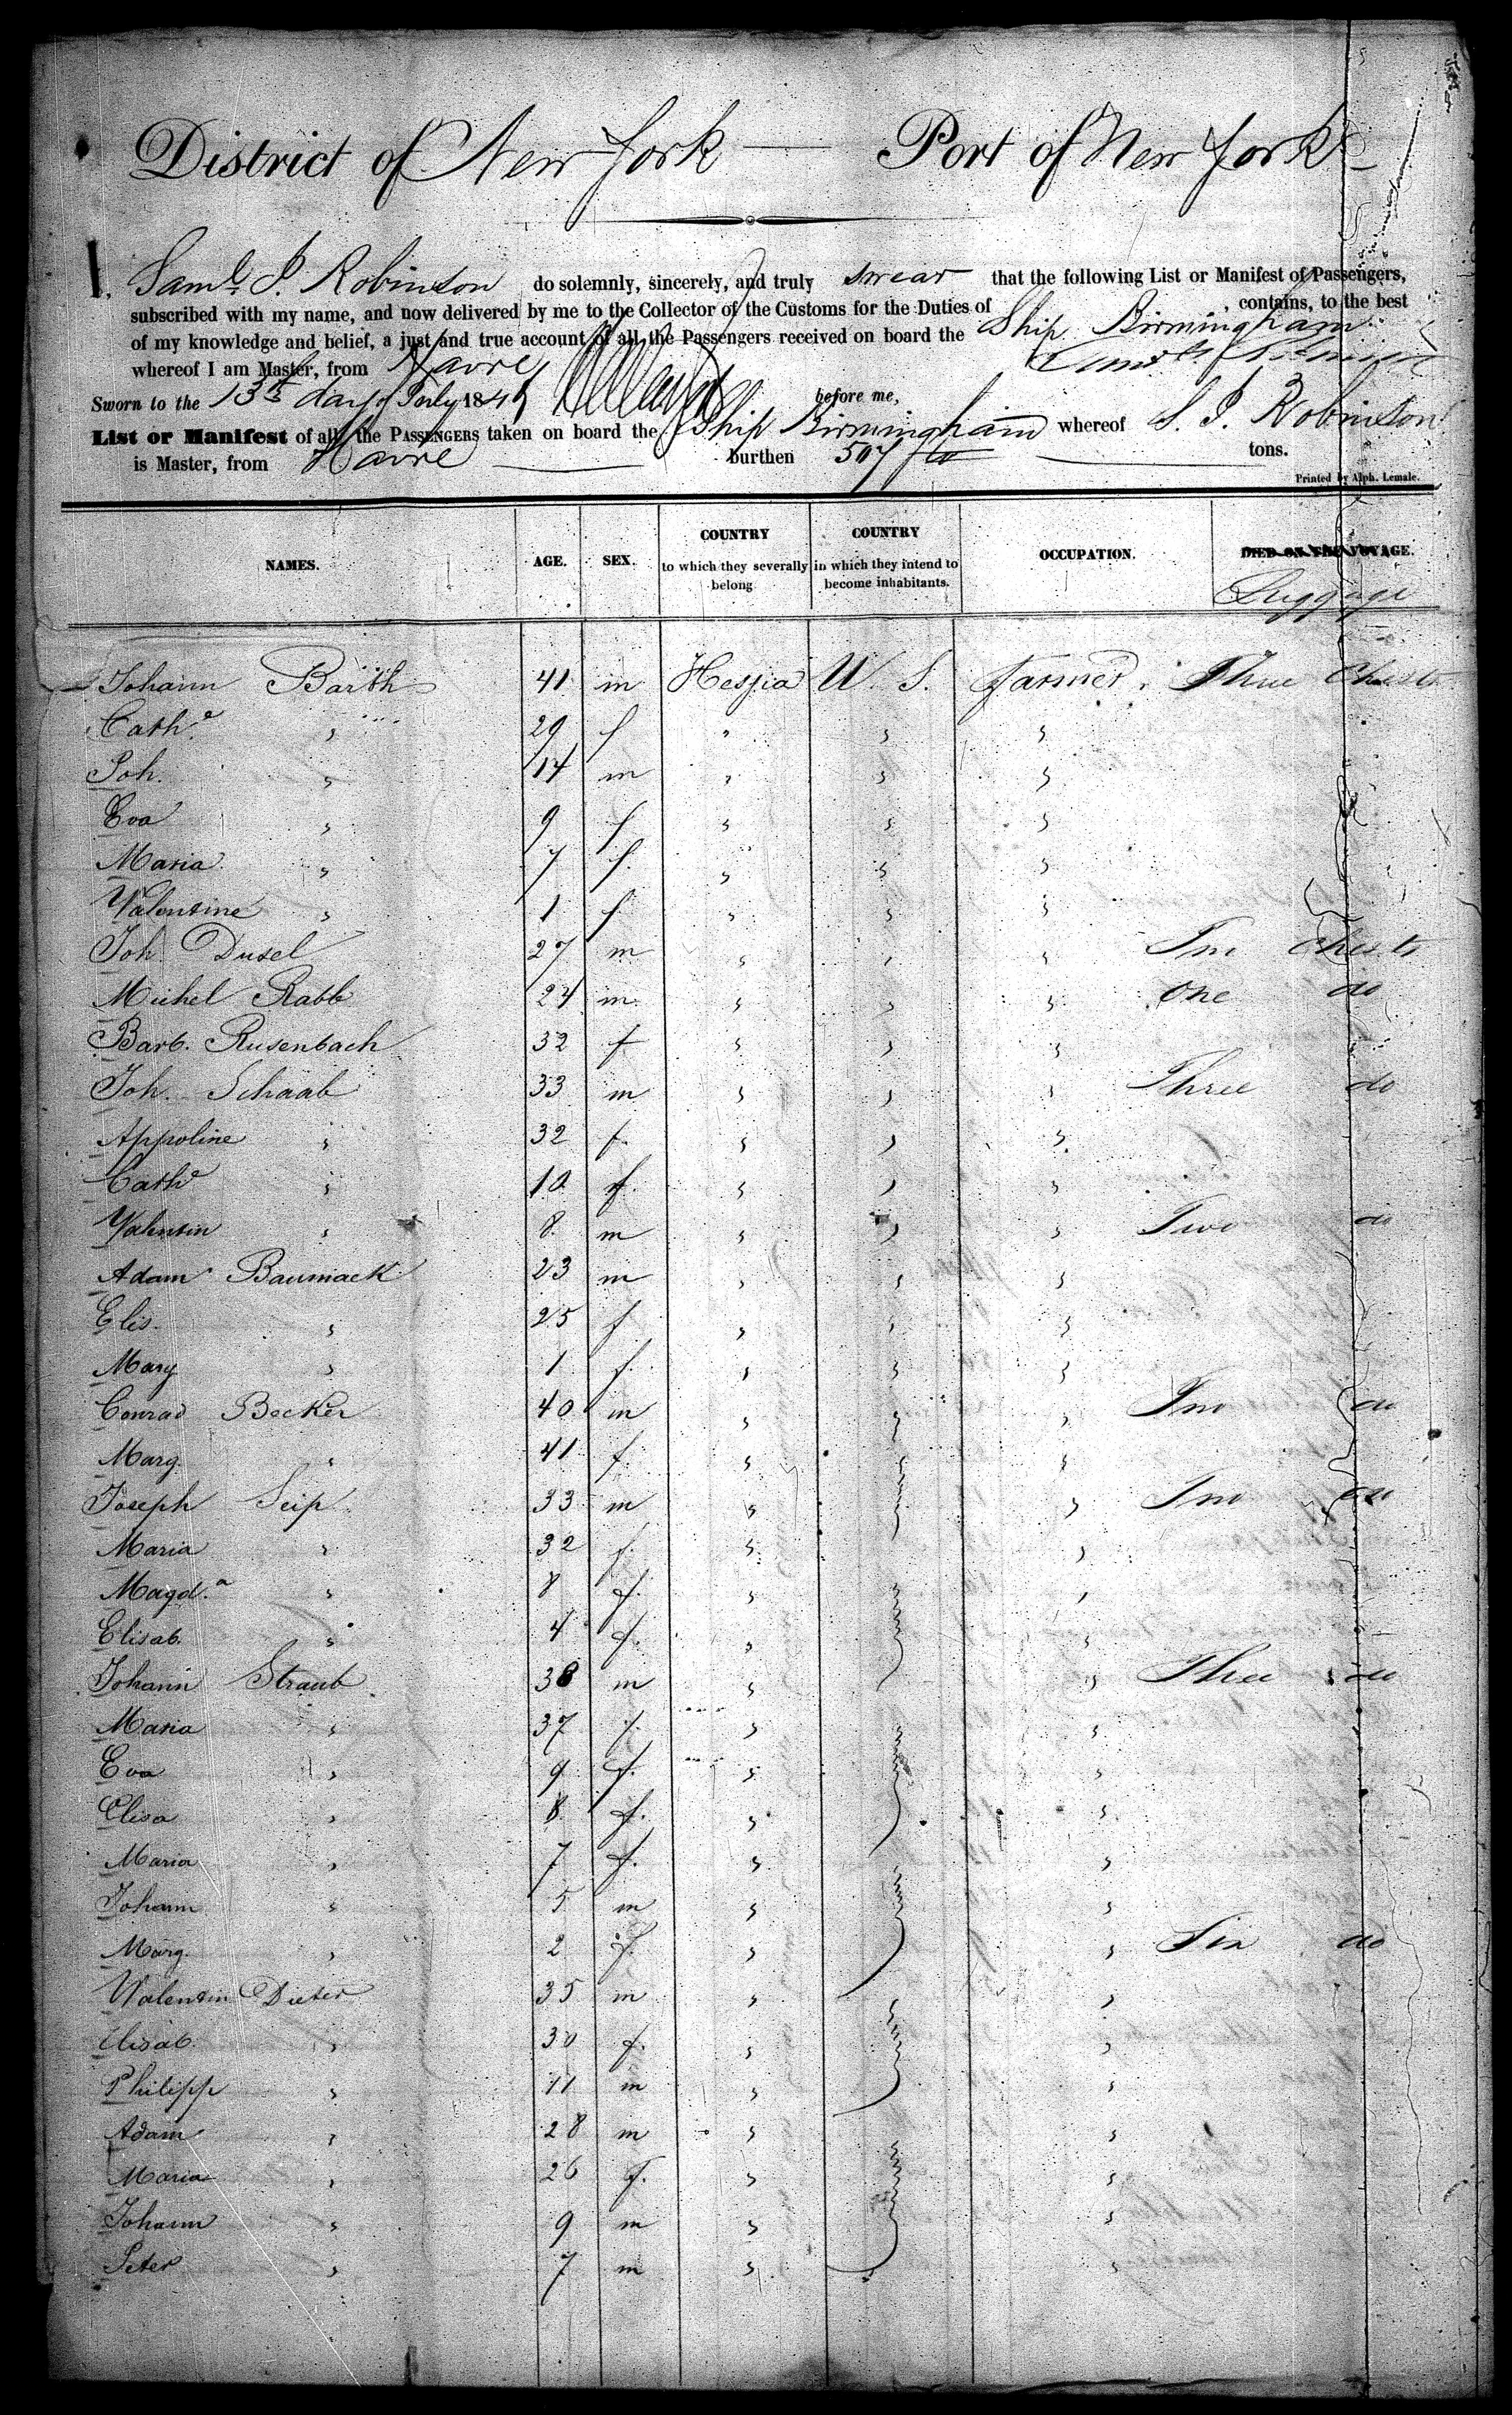 District of New York — Port of New York
I, Saml. J. Robinson do solemnly, sincerely, and truly swear that the following List or Manifest of Passengers,
subscribed with my name, and now delivered by me to the Collector of the Customs for the Duties of , contains, to the best
of my knowledge and belief, a just and true account of all the Passengers received on board the Ship Birmingham
whereof I am Master, from Havre
Sworn to the 13th day of July 184 before me,
List or Manifest of all the PASSENGERS taken on board the Ship Birmingham whereof S. J. Robinson
is Master, from Havre burthen 507 tons.
Printed by Alph. Lemale.
NAMES. AGE. SEX. COUNTRY to which they severally belong COUNTRY in which they intend to become inhabitants. OCCUPATION. DIED ON THE VOYAGE.
Luggage
Johann Barth 41 m Hessia U. S. farmer. Three Chests
Cathe. " 29 f " " "
Joh. " 14 m " " "
Eva " 9 f " " "
Maria " 7 f. " " "
Valentine " 1 f " " "
Joh. Dusel 27 m " " " Two Chests
Michel Rabb 24 m " " " One do
Barb. Rusenbach 32 f " " "
Joh. Schaab 33 m " " " Three do
Appoline " 32 f. " " "
Cathe " 10 f. " " "
Valentin " 8 m " " " Two do
Adam Baumack 23 m " " "
Elis. " 25 f. " " "
Mary " 1 f. " " "
Conrad Becker 40 m " " " Two do
Marg. " 41 f. " " "
Joseph Seip 33 m " " " Two do
Maria " 32 f. " "
Magd.a " 8 f. " "
Elisab. " 4 f. " "
Johann Straub 38 m " " Three do
Maria " 37 f. " "
Eva " 9 f. " "
Elisa " 8 f. " "
Maria " 7 f. " "
Johann " 5 m " "
Marg. " 2 f. " " Six do
Valentin Dieter 35 m " "
Elisab. " 30 f. " "
Philipp " 11 m " "
Adam " 28 m " "
Maria " 26 f. " "
Johann " 9 m " "
Peter " 7 m " "